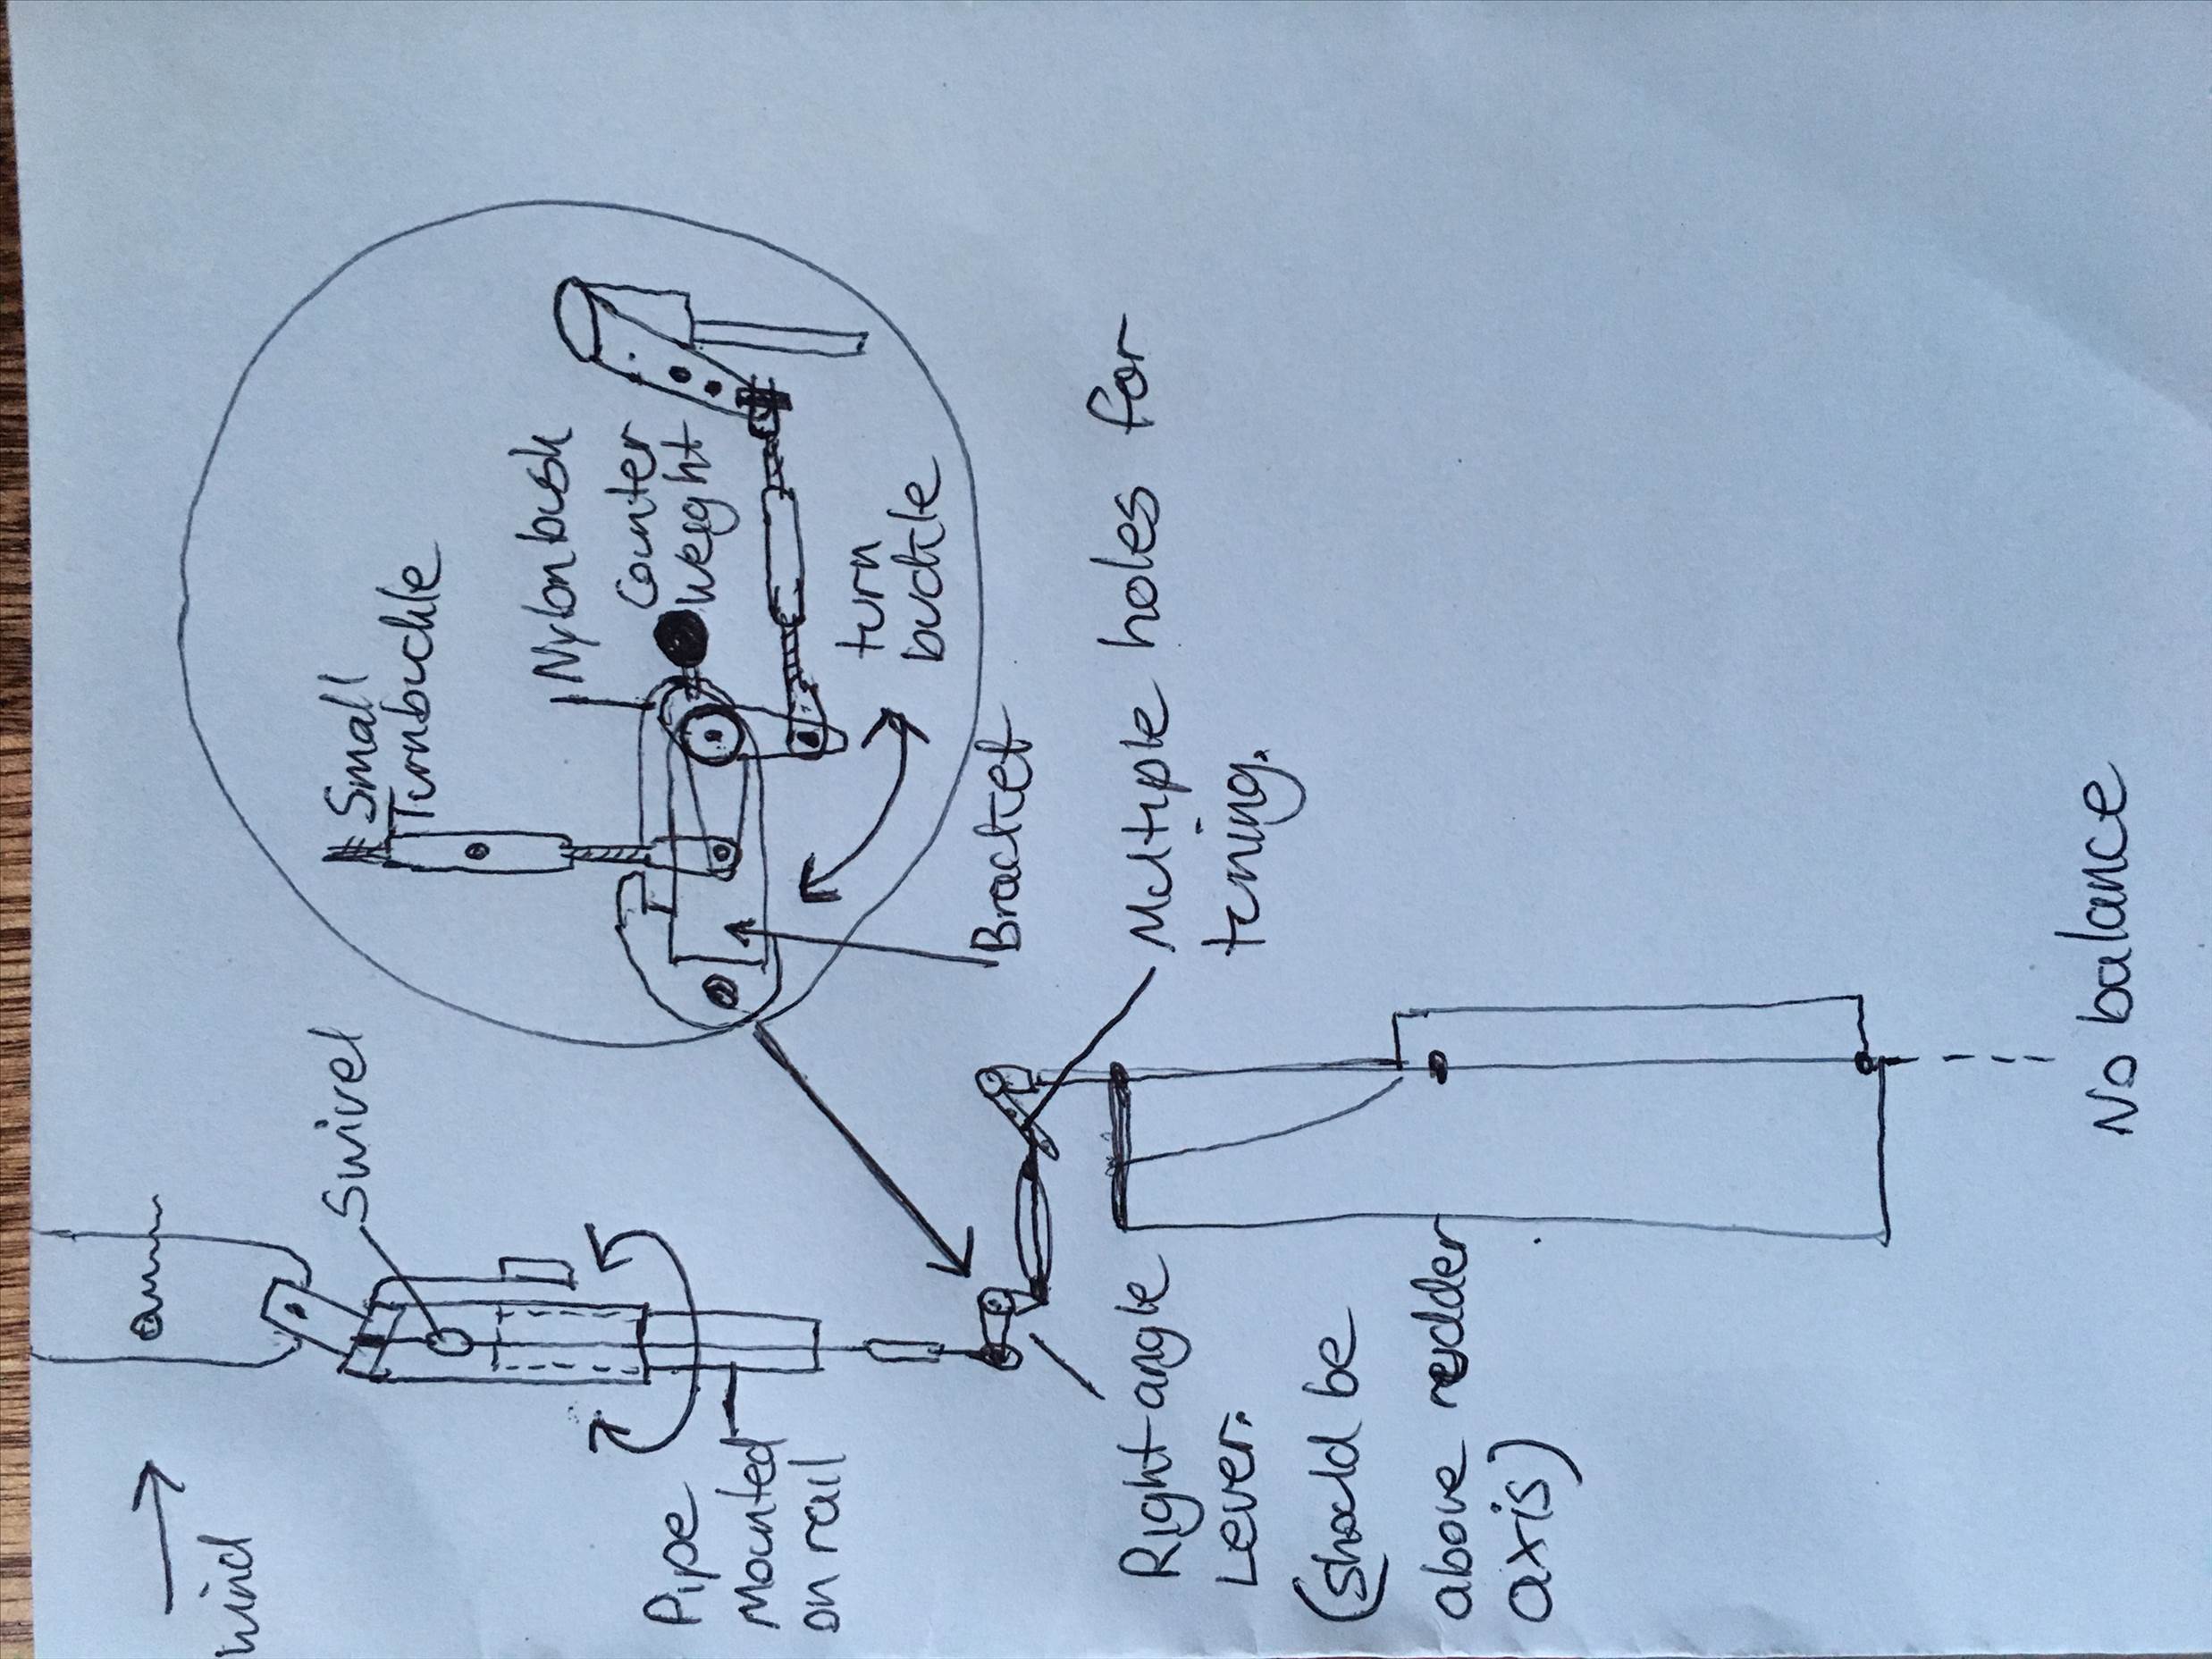 Wind
Swivel
Pipe
Mounted
on rail
Small
Turnbuckle
Nylon bush
Counter
Weight
turn
buckle
Bracket
Multiple holes for
tuning.
Right angle
Lever.
(should be
above rudder
axis)
No balance